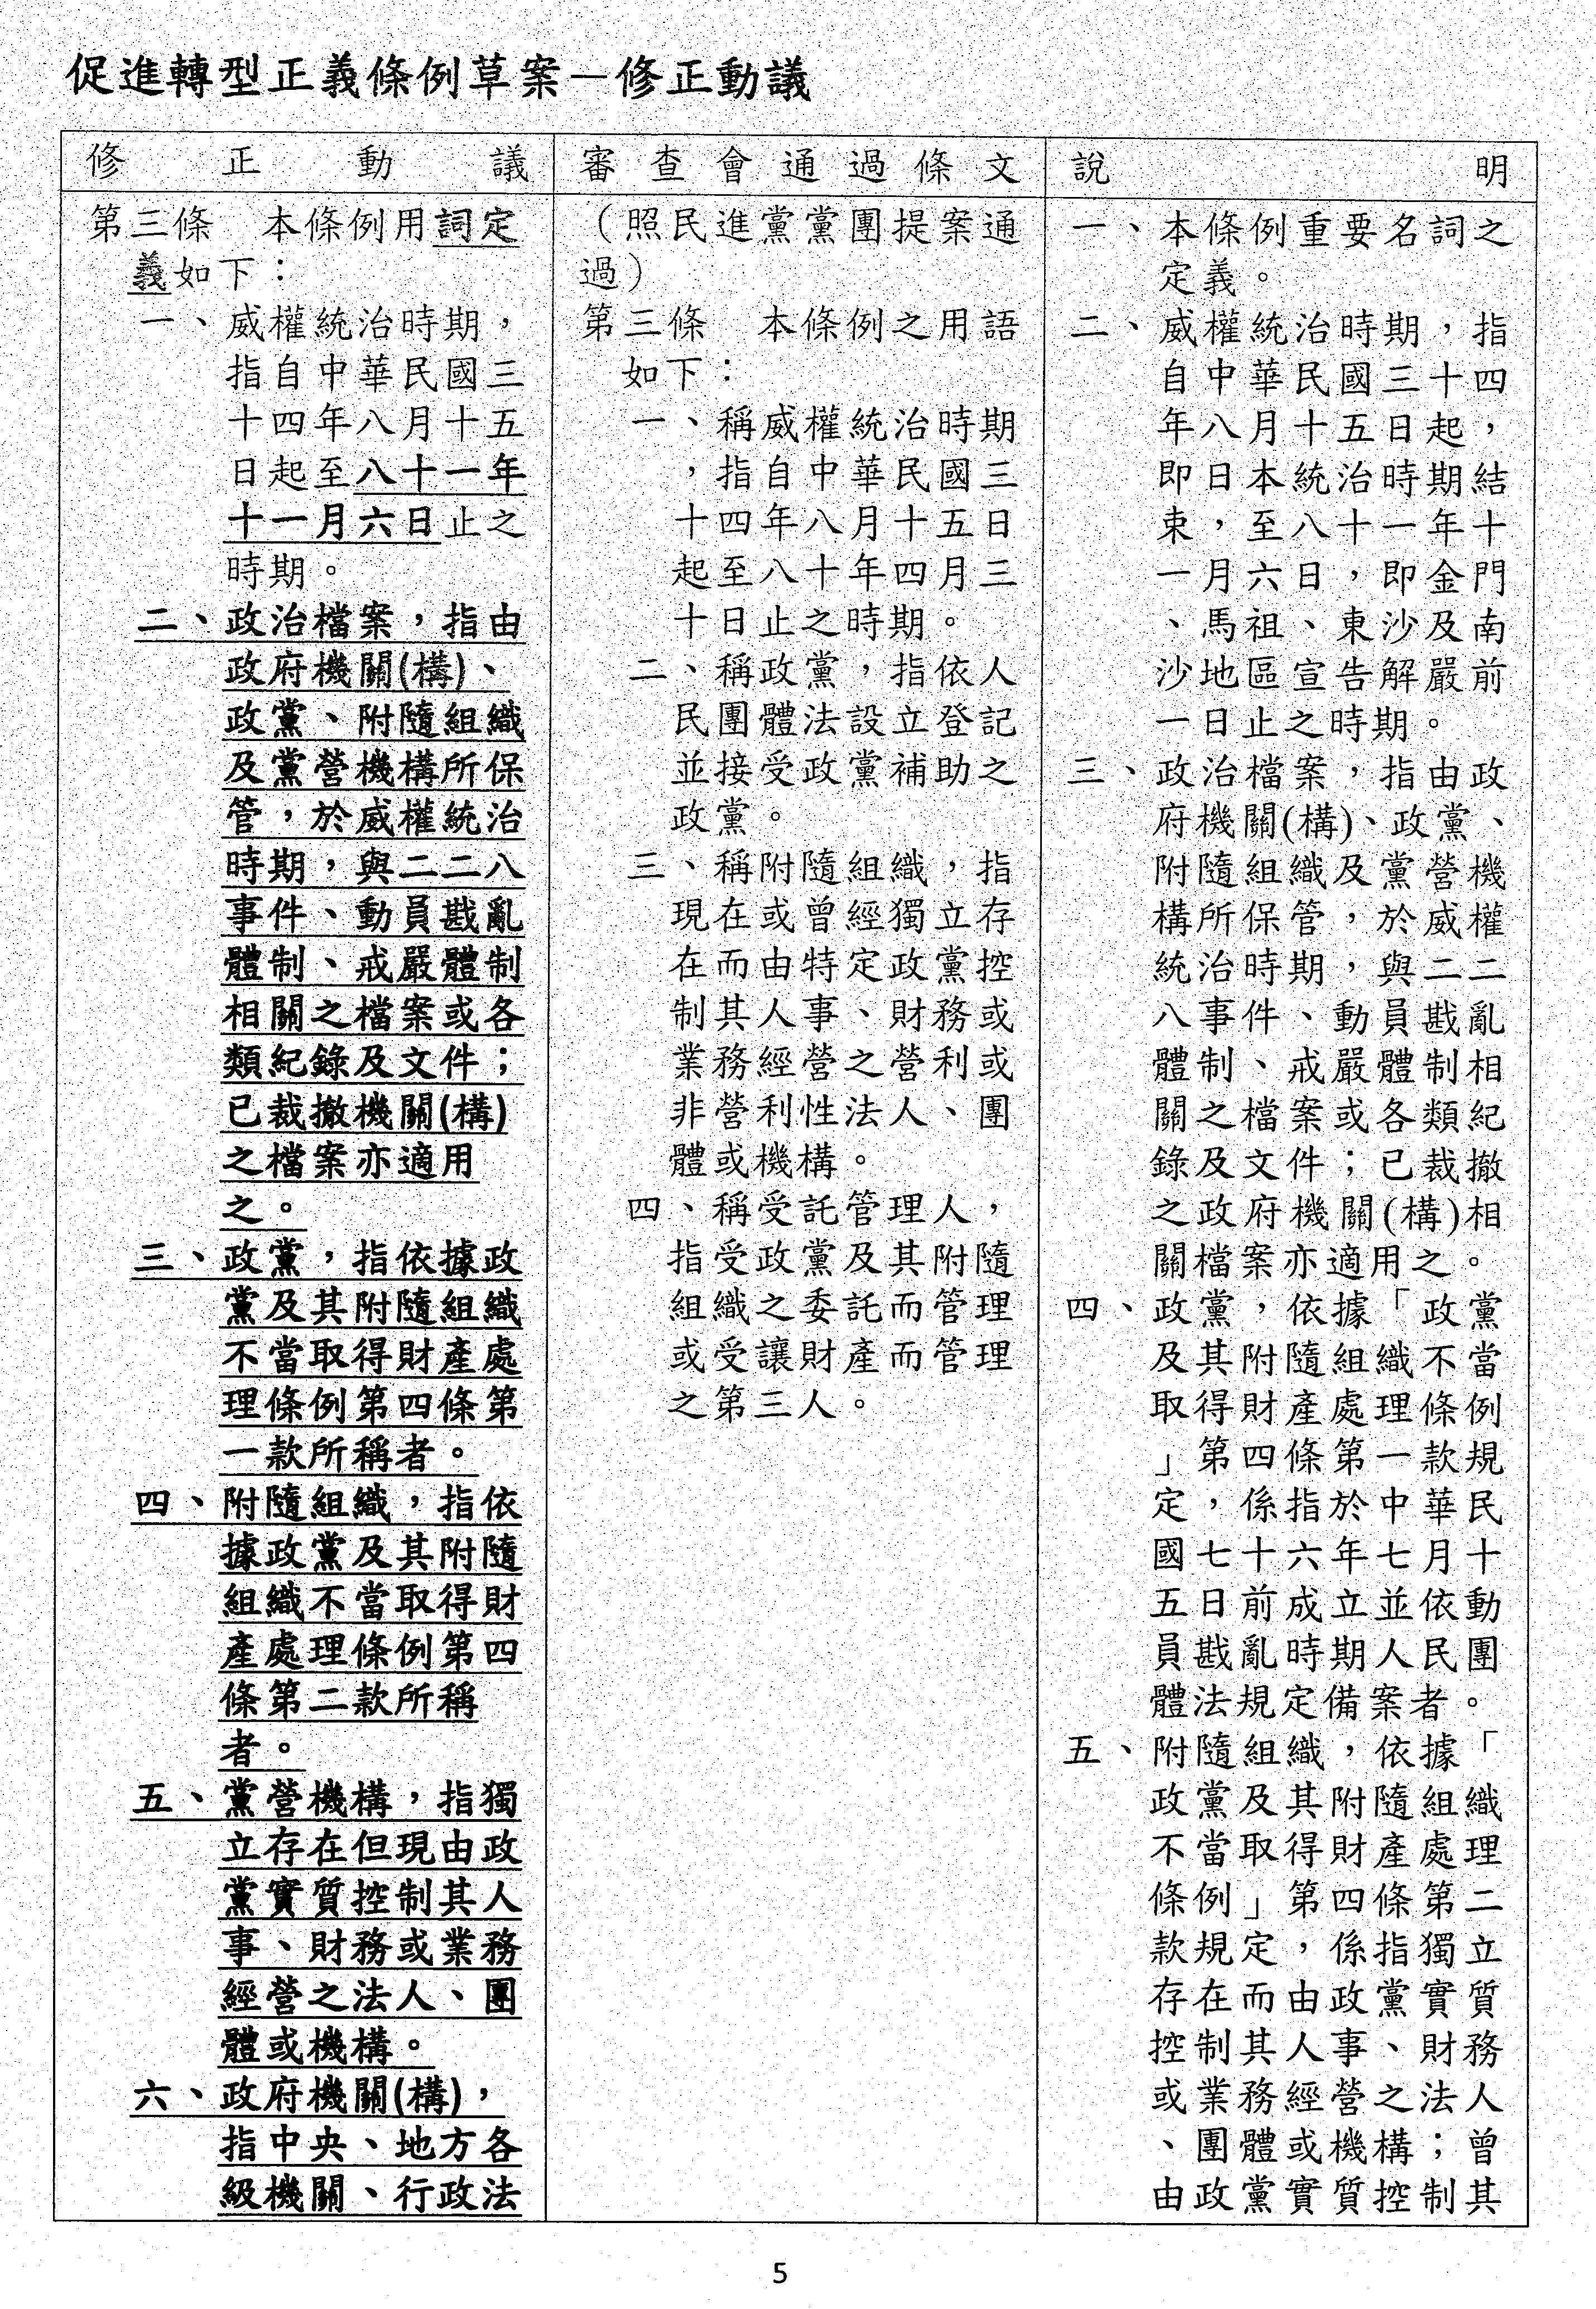 促進轉型正義條例草案－修正動議
修正動議
第三條　本條例用詞定
義如下：
一、威權統治時期，
指自中華民國三
十四年八月十五
日起至八十一年
十一月六日止之
時期。
二、政治檔案，指由
政府機關(構)、
政黨、附隨組織
及黨營機構所保
管，於威權統治
時期，與二二八
事件、動員戡亂
體制、戒嚴體制
相關之檔案或各
類紀錄及文件；
已裁撤機關(構)
之檔案亦適用
之。
三、政黨，指依據政
黨及其附隨組織
不當取得財產處
理條例第四條第
一款所稱者。
四、附隨組織，指依
據政黨及其附隨
組織不當取得財
產處理條例第四
條第二款所稱
者。
五、黨營機構，指獨
立存在但現由政
黨實質控制其人
事、財務或業務
經營之法人、團
體或機構。
六、政府機關(構)，
指中央、地方各
級機關、行政法
審查會通過條文
（照民進黨黨團提案通
過）
第三條　本條例之用語
如下：
一、稱威權統治時期
，指自中華民國三
十四年八月十五日
起至八十年四月三
十日止之時期。
二、稱政黨，指依人
民團體法設立登記
並接受政黨補助之
政黨。
三、稱附隨組織，指
現在或曾經獨立存
在而由特定政黨控
制其人事、財務或
業務經營之營利或
非營利性法人、團
體或機構。
四、稱受託管理人，
指受政黨及其附隨
組織之委託而管理
或受讓財產而管理
之第三人。
說明
一、本條例重要名詞之
定義。
二、威權統治時期，指
自中華民國三十四
年八月十五日起，
即日本統治時期結
束，至八十一年十
一月六日，即金門
、馬祖、東沙及南
沙地區宣告解嚴前
一日止之時期。
三、政治檔案，指由政
府機關(構)、政黨、
附隨組織及黨營機
構所保管，於威權
統治時期，與二二
八事件、動員戡亂
體制、戒嚴體制相
關之檔案或各類紀
錄及文件；已裁撤
之政府機關(構)相
關檔案亦適用之。
四、政黨，依據「政黨
及其附隨組織不當
取得財產處理條例
」第四條第一款規
定，係指於中華民
國七十六年七月十
五日前成立並依動
員戡亂時期人民團
體法規定備案者。
五、附隨組織，依據「
政黨及其附隨組織
不當取得財產處理
條例」第四條第二
款規定，係指獨立
存在而由政黨實質
控制其人事、財務
或業務經營之法人
、團體或機構；曾
由政黨實質控制其
5